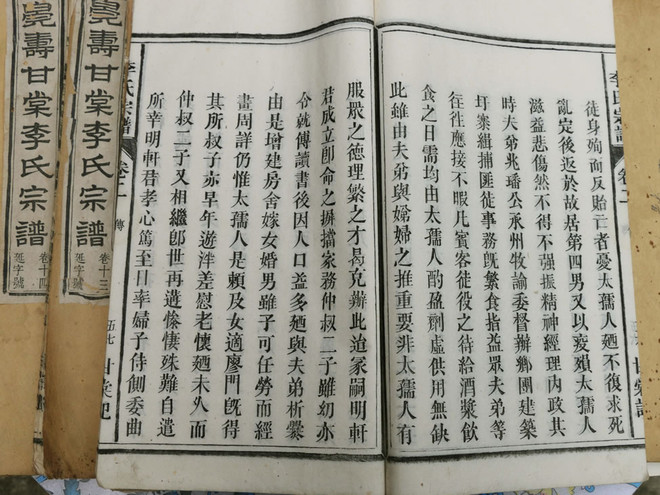 李氏宗譜 卷二
徒身殉而反貽亡者憂太孺人廼不復求死
亂定後返於故居第四男又以疫殞太孺人
滋益悲傷然不得不強振精神經理內政其
時夫弟兆璠公永州牧諭委督辦鄉團建築
圩寨緝捕匪徒事務旣繁食指益眾夫弟等
往徃應接不暇凡賓客徒役之待給酒漿飲
食之日需均由太孺人酌盈劑虛供用無缺
此雖由夫弟與嫦婦之推重要非太孺人有
服眾之德理繁之才曷克辦此迨冡嗣明軒
君成立卽命之摒擋家務仲叔二子雖幼亦
令就傅讀書後因人口益多廼與夫弟析爨
由是增建房舍嫁女婚男雖子可任勞而經
畫周詳仍惟太孺人是賴及女適廖門旣得
其所叔子亦早年遊泮差慰老懷廼未久而
仲叔二子又相繼卽世再遭慘悽殊難自遣
所幸明軒君孝心篤至日率婦子侍側委曲
李氏宗譜 卷二 傳 五七 甘棠記
壽甘棠李氏宗譜 卷十三 延字號
壽甘棠李氏宗譜 卷十四 延字號